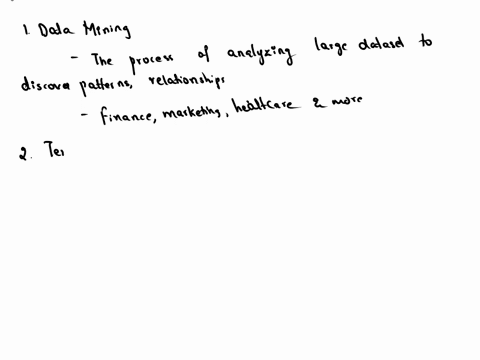 1. Data Mining
- The process of analyzing large dataset to
discover patterns, relationships
- finance, marketing, healthcare & more
2. Ter